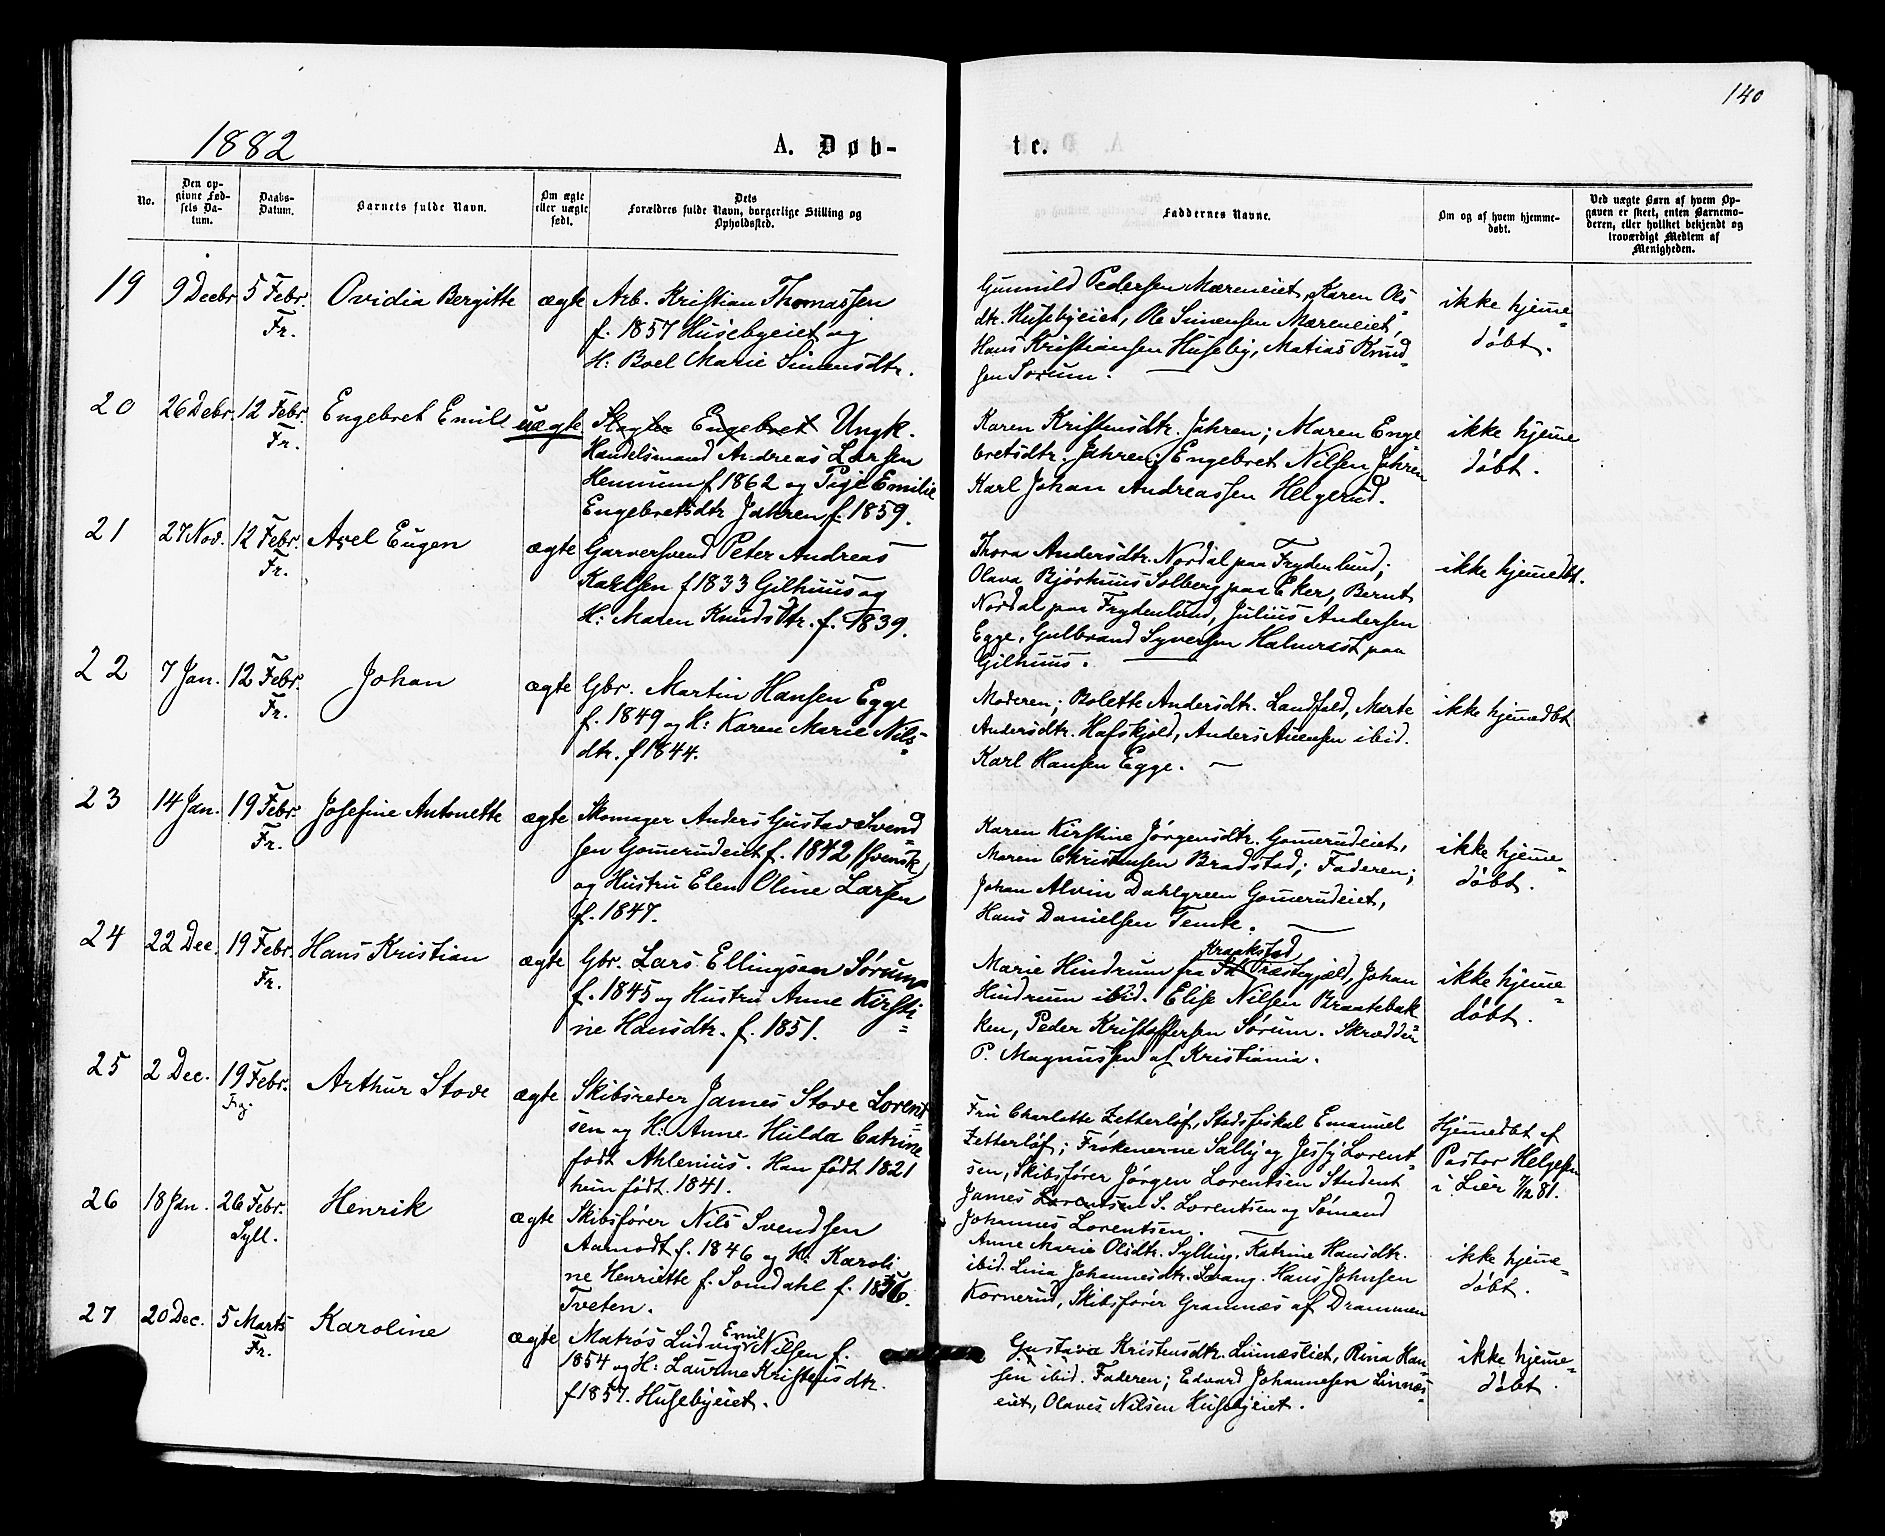 140
1882
A. Døb-
te.
No.
Den op-
givne Fød-
sels Da-
tum.
Daabs-
Datum.
Barnets fulde Navn.
Om ægte
eller uægte
født.
Dets
Forældres fulde Navn, borgerlige Stilling og
Opholdssted.
Faddernes Navne.
Om og af hvem hjemme-
døbt.
Ved uægte Børn af hvem Op-
gaven er skeet, enten Barnemo-
deren, eller hvilket bekjendt og
troværdigt Medlem af
Menigheden.
19
9 Decbr
5 Febr.
Fr.
Ovidia Bergitte
ægte
Arb. Kristian Thomassen
f. 1857 Husebyeiet og
H. Boel Marie Simensdtr.
Gunnild Pedersen Mæreneiet, Karen Ols
dtr. Husebyeiet, Ole Simensen Mæreneiet,
Hans Kristiansen Huseby, Matias Knud-
sen Sørum.
ikke hjeme-
døbt.
20
26 Debr.
12 Febr.
Fr.
Engebret Emill
uægte
Slagter Engebret Ungk.
Handelsmand Andreas Larsen
Hennum f 1862 og Pige Emilie
Engebretsdtr Jahren f. 1859.
Karen Kristensdtr. Jahren; Maren Enge-
bretsdtr. Jahren; Engebret Nilsen Jahren
Karl Johan Andreassen Helgerud.
ikke hjeme
døbt.
21
27 Nov.
12 Febr.
Fr.
Axel Eugen
ægte
Garversvend Peter Andreas
Karlsen f 1833 Gilhuus og
H: Maren Knudsdtr. f. 1839.
Thora Andersdtr. Nordal paa Frydenlund;
Olava Bjørhuus Solberg paa Eker, Bernt
Nordal paa Frydenlund, Julius Andersen
Egge, Gulbrand Syversen Halvorast paa
Gilhuus.
ikke hjemedbt.
22
7 Jan.
12 Febr.
Fr.
Johan
ægte
Gbr. Martin Hansen Egge
f. 1849 og H: Karen Marie Nils-
dtr. f 1844.
Moderen; Bolette Andersdtr. Landfald, Marte
Andersdtr. Hafskjold, Anders ibid.
Karl Hansen Egge.
ikke hjemedbt
23
14 Jan.
19 Febr.
Fr.
Josefine Antonette
ægte
Skomager Anders Gustav Svend-
sen Gomerudeiet f. 1842 (svensk)
og Hustru Elen Oline Larsen
f. 1847.
Karen Kirstine Jørgensdtr. Gomerudeiet,
Maren Christensen Bradstad; Faderen;
Johan Alvin Dahlgreen Gomerudeiet,
Hans Danielsen Temte.
ikke hjeme-
døbt.
24
22 Dec.
19 Febr.
Fr.
Hans Kristian
ægte
Gbr. Lars Ellingsen Sørum
f. 1845 og Hustru Anne Kirsti-
ne Hansdtr. f. 1851.
Kraakstad
Marie Hindrum fra Præstegjæld, Johan
Hindrum ibid. Elise Nilsen Braatebak
ken, Peder Kristoffersen Sørum. Skrædder
P. Magnussen af Kristiania.
ikke hjeme-
døbt.
25
2 Dec.
19 Febr.
Frg.
Arthur Stove
ægte
Skibsreder James Stove Lorent-
sen og H: Anne Hulda Catrine
født Ahlenius. Han født 1821
hun født 1841.
Fru Charlotte Zetterløf, Stadsfiskal Emanuel
Zetterløf; Frøkenerne Sally og Jessy Lorent-
sen, Skibsfører Jørgen Lorentsen Student
James Lorentsen S. Lorentsen og Sømand
Johannes Lorentsen.
Hjemedbt af
Pastor Helgesen
i Lier 7/12 81.
26
18 Jan.
26 Febr.
Syll.
Henrik
ægte
Skibsfører Nils Svendsen
Aamodt f. 1846 og H. Karoli
ne Henriette f. Somdahl f. 1856.
Tveten.
Anne Marie Olsdtr. Sylling. Katrine Hansdtr.
ibid. Lina Johannesdtr. Svang. Hans Johnsen
Kornerud, Skibsfører Gramnæs af Drammen
ikke hjeme-
døbt.
27
20 Dec.
5 Marts
Fr.
Karoline
ægte
Emil
Matros Ludvig Nilsen f.
1854 og H: Laurine Kristensdtr.
f 1857. Husebyeiet.
Gustava Kristensdtr. Linnæseiet, Rina Han-
sen ibid. Faderen; Edvard Johannesen Linnæs-
eiet, Olaves Nilsen Husebyeiet.
ikke hjeme-
døbt.